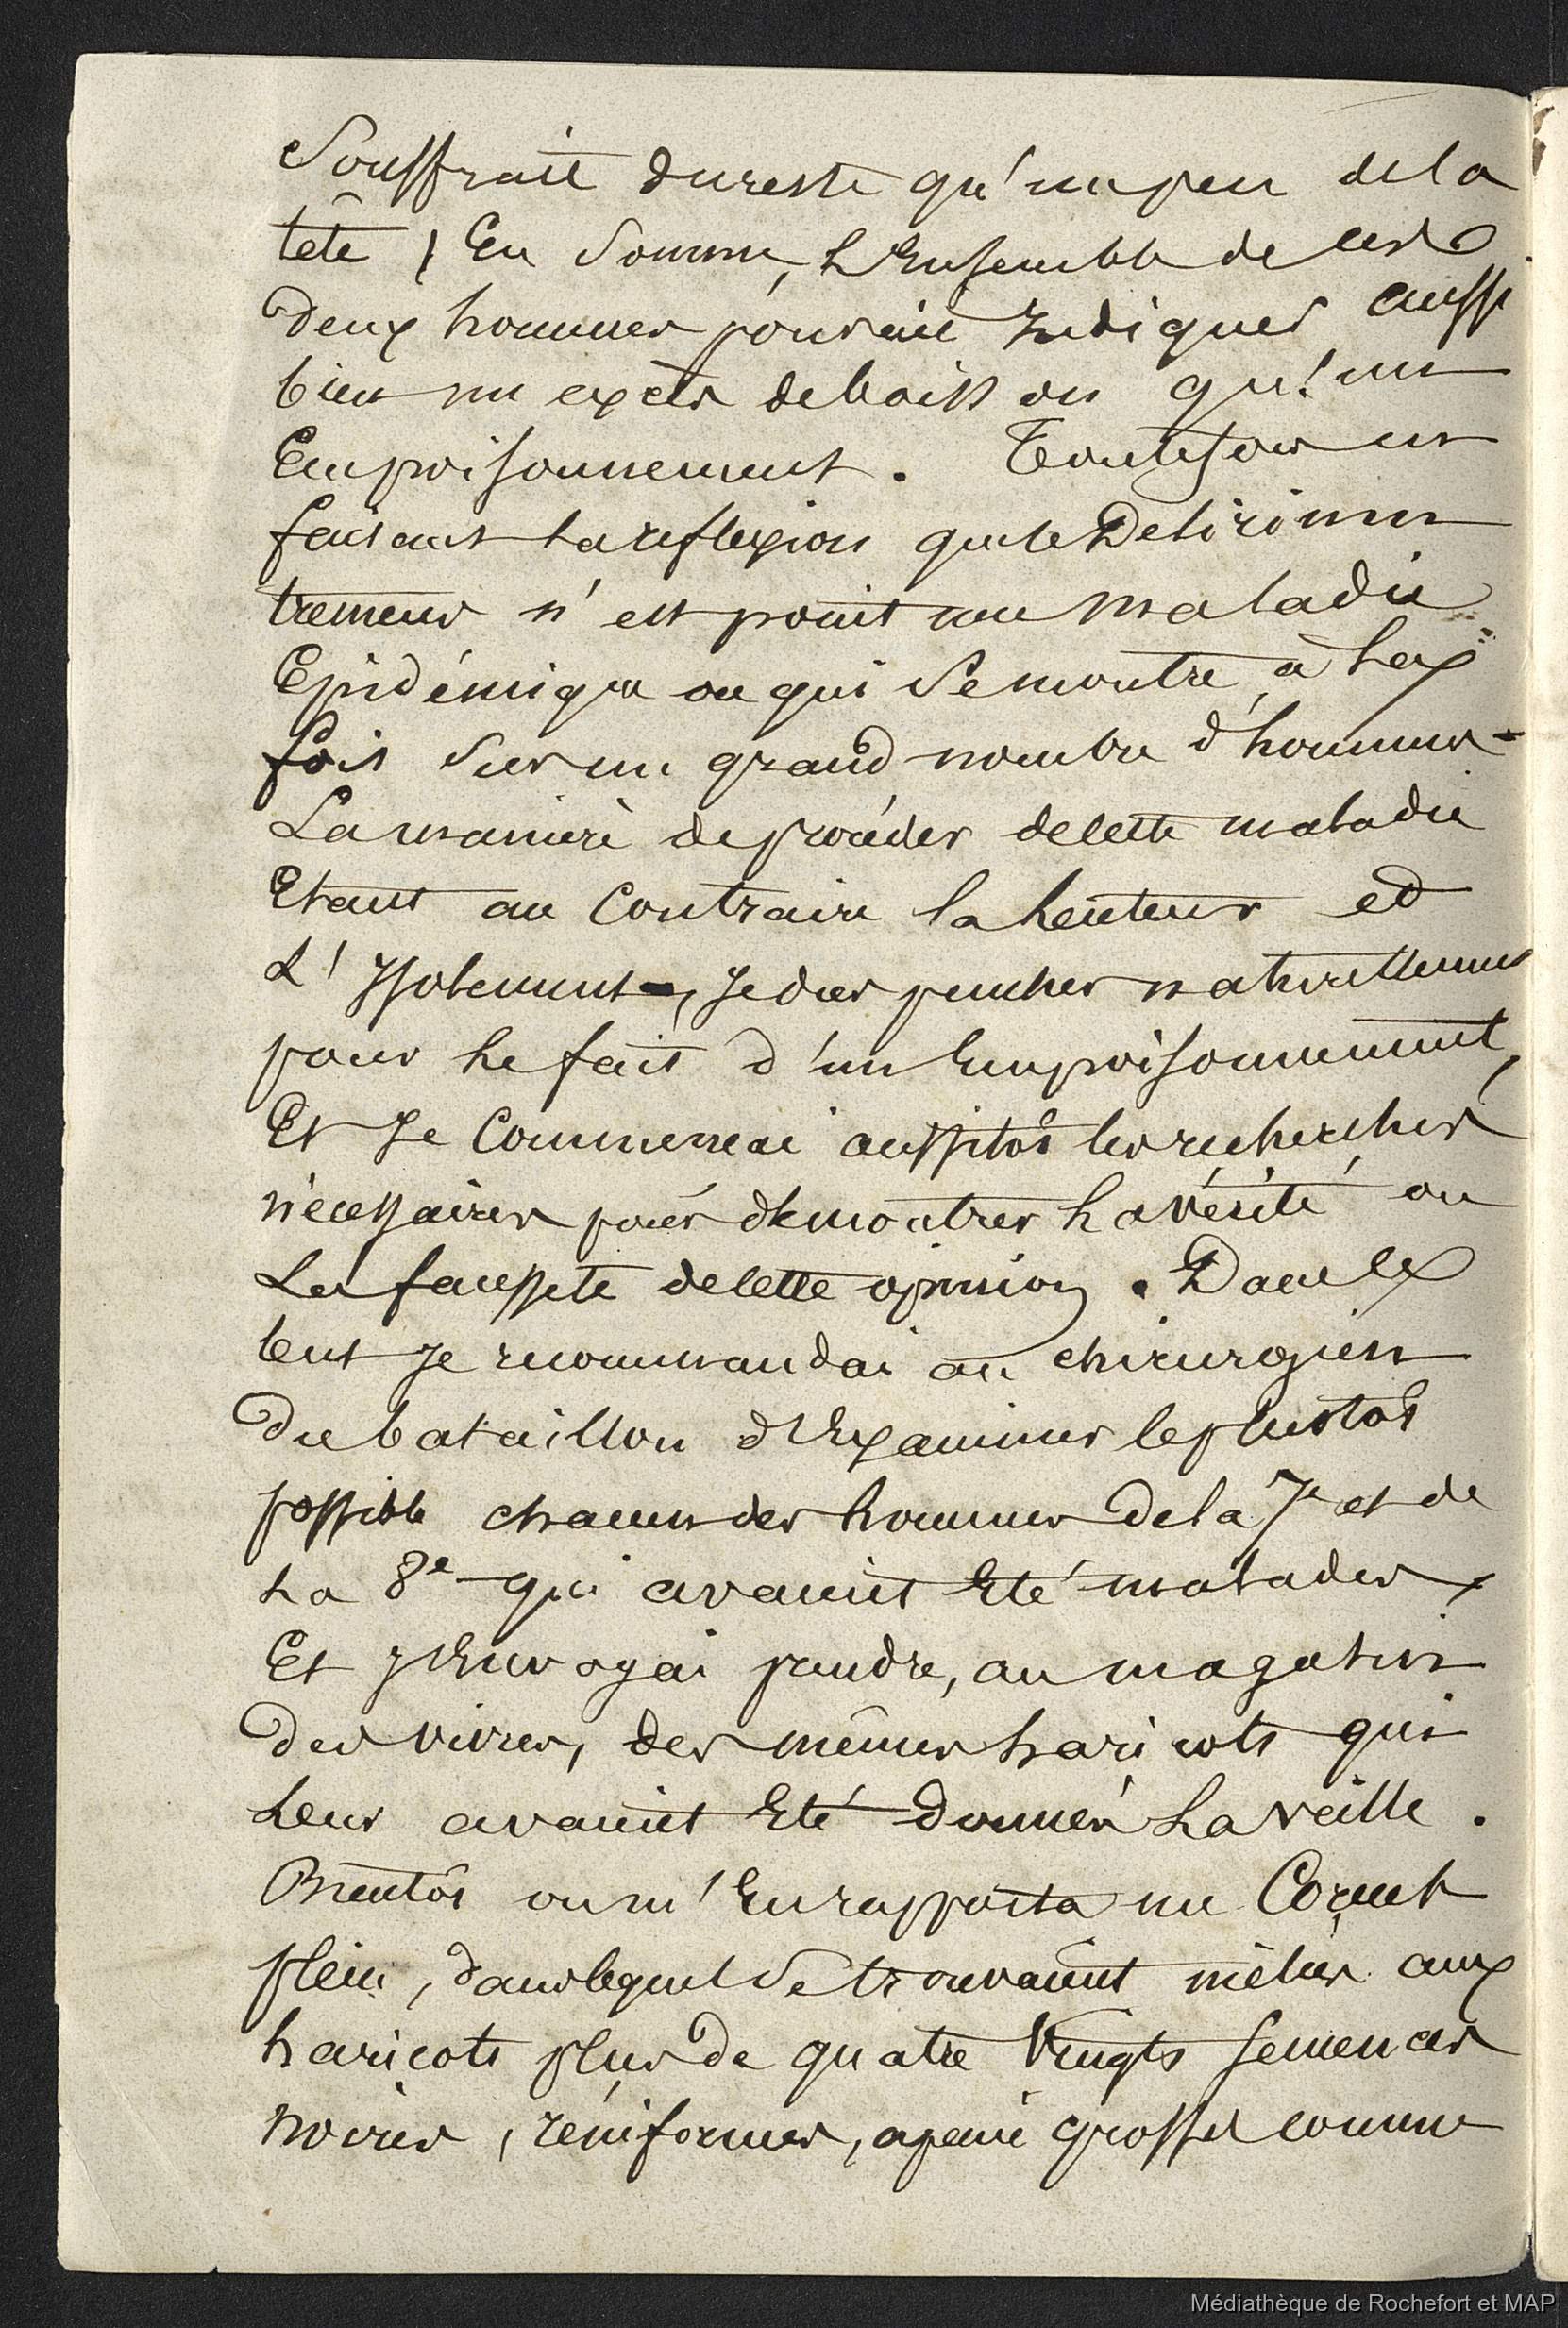 Souffrait du reste qu'un peu de la
tête ) En somme, l'Ensemble de ces
deux hommes pouvait Indiquer aussi
bien un excès de boisson qu'un
Empoisonnement. Toutefois en
faisant la reflexion que le Delirium
tremens n'est point une maladie
Epidémique ou qui se montre à la
fois sur un grand nombre d'hommes -
La manière de procéder de cette maladie
Etant au Contraire la lenteur et
L'Isolement -, Je dus pencher naturellement
pour le fait d'un Empoisonnement,
Et Je Commencai aussitôt les recherches
nécessaires pour démontrer la vérité ou
La fausseté de cette opinion. Dans le
but Je recommandai au chirurgien
du bataillon d'Examiner le plustôt
possible chacun des hommes de la 7e et de
La 8e qui avaient Eté malades
Et J'Envoyai prendre, au magasin
des vivres, des mêmes haricots qui
Leur avaient Eté donnés La veille.
Bientôt on m'En rapporta un Cornet
plein, dans lequel se trouvaient mêlés aux
haricots plus de quatre Vingts semences
noires, réniformes, a peine grosses comme
Médiathèque de Rochefort et MAP